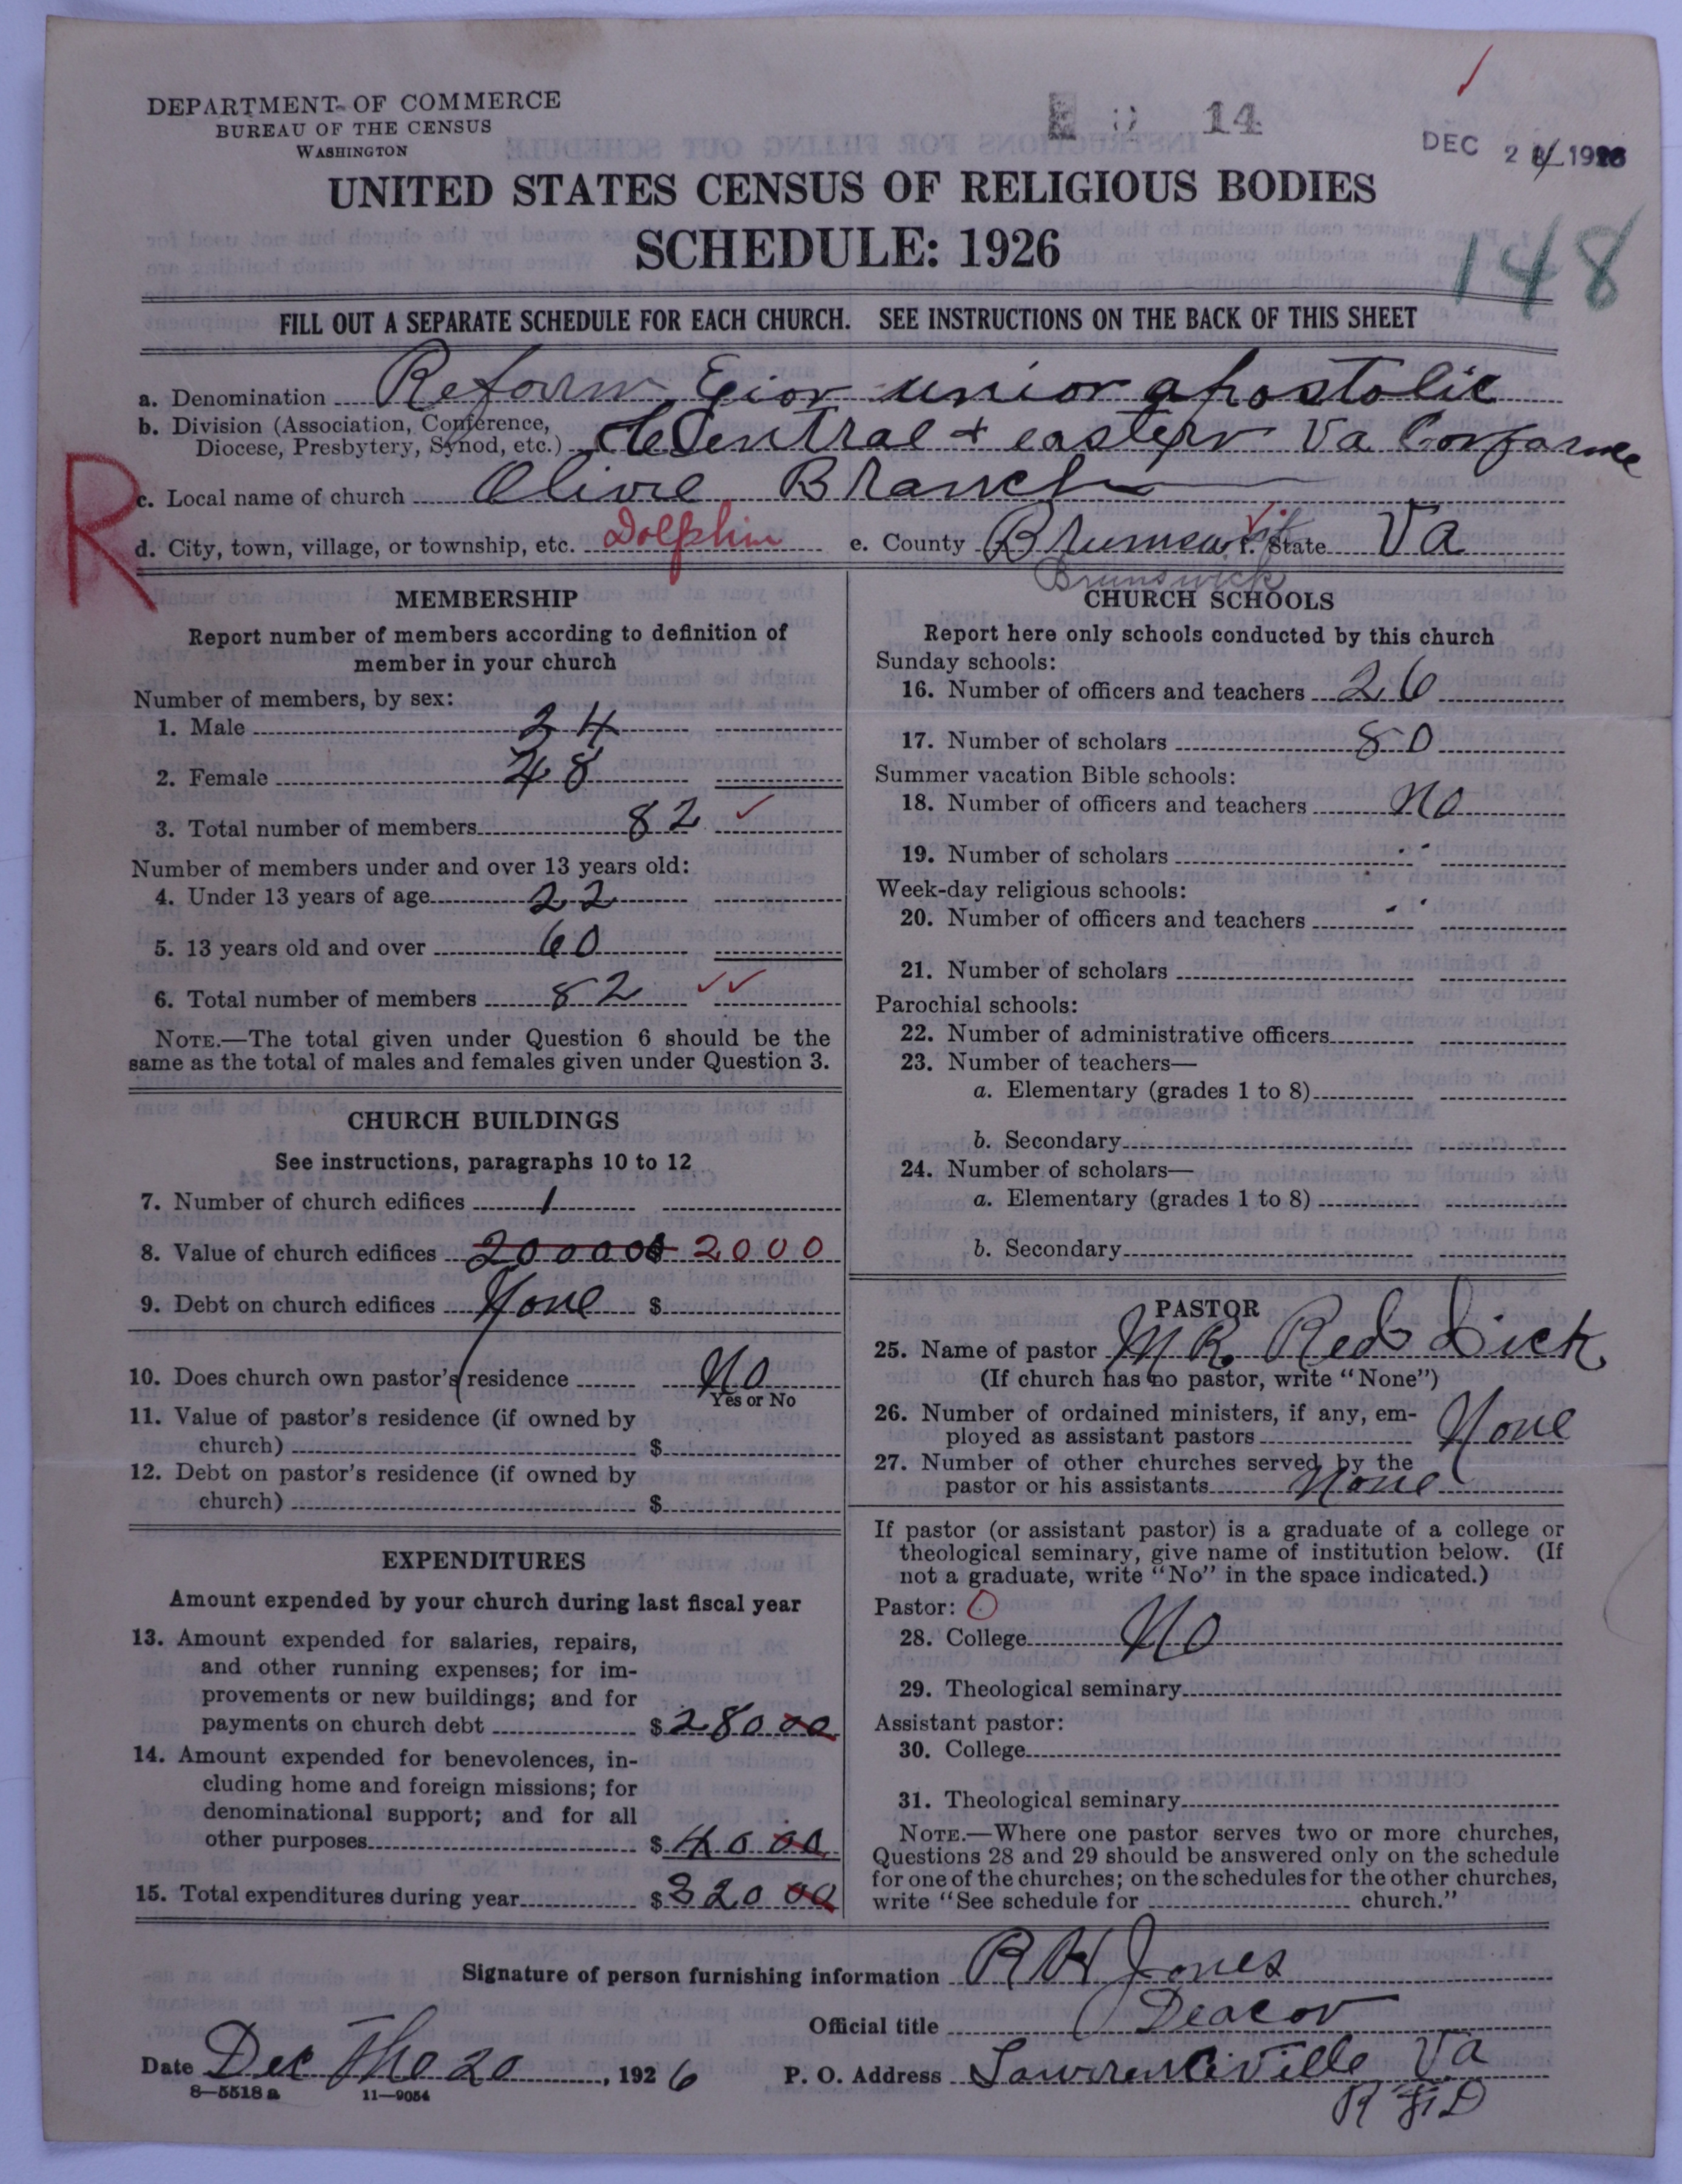 DEPARTMENT OF COMMERCE
BUREAU OF THE CENSUS
WASHINGTON
14
DEC 2 1926
UNITED STATES CENSUS OF RELIGIOUS BODIES
SCHEDULE: 1926
148
FILL OUT A SEPARATE SCHEDULE FOR EACH CHURCH. SEE INSTRUCTIONS ON THE BACK OF THIS SHEET
a. Denomination Reform Zion union apostolic
b. Division (Association, Conference,
Diocese, Presbytery, Synod, etc.) Central + eastern Va Confarnce
R
c. Local name of church Olive Branch
d. City, town, village, or township, etc. Dolphin e. County f. State Va
Brunswick
MEMBERSHIP
Report number of members according to definition of
member in your church
Number of members, by sex:
1. Male 34
2. Female 48
3. Total number of members 82
Number of members under and over 13 years old:
4. Under 13 years of age 22
5. 13 years old and over 60
6. Total number of members 82
NOTE.—The total given under Question 6 should be the
same as the total of males and females given under Question 3.
CHURCH BUILDINGS
See instructions, paragraphs 10 to 12
7. Number of church edifices 1
8. Value of church edifices 200000 $ 2000
9. Debt on church edifices None $
10. Does church own pastor's residence No
Yes or No
11. Value of pastor's residence (if owned by
church) $
12. Debt on pastor's residence (if owned by
church) $
EXPENDITURES
Amount expended by your church during last fiscal year
13. Amount expended for salaries, repairs,
and other running expenses; for im-
provements or new buildings; and for
payments on church debt $ 280 00
14. Amount expended for benevolences, in-
cluding home and foreign missions; for
denominational support; and for all
other purposes $ 40 00
15. Total expenditures during year $ 320 00
CHURCH SCHOOLS
Report here only schools conducted by this church
Sunday schools:
16. Number of officers and teachers 26
17. Number of scholars 80
Summer vacation Bible schools:
18. Number of officers and teachers No
19. Number of scholars
Week-day religious schools:
20. Number of officers and teachers
21. Number of scholars
Parochial schools:
22. Number of administrative officers
23. Number of teachers—
a. Elementary (grades 1 to 8)
b. Secondary
24. Number of scholars—
a. Elementary (grades 1 to 8)
b. Secondary
PASTOR
25. Name of pastor M R. Red Dick
(If church has no pastor, write "None")
26. Number of ordained ministers, if any, em-
ployed as assistant pastors None
27. Number of other churches served by the
pastor or his assistants None
If pastor (or assistant pastor) is a graduate of a college or
theological seminary, give name of institution below. (If
not a graduate, write "No" in the space indicated.)
Pastor: 0
28. College No
29. Theological seminary
Assistant pastor:
30. College
31. Theological seminary
NOTE.—Where one pastor serves two or more churches,
Questions 28 and 29 should be answered only on the schedule
for one of the churches; on the schedules for the other churches,
write "See schedule for church."
Signature of person furnishing information R H Jones
Official title Deacon
Date Dec the 20, 1926 P. O. Address Lawrenceville Va
8—5518a 11—9054 R F D